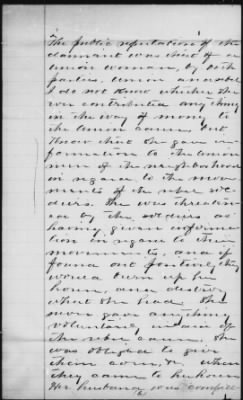 The public reputation of the
claimant was that of a
Union woman, by both
parties, Union and rebel
I do not know whether she
ever contributed any thing
in the way of money to
the Union cause, but
know that she gave in-
formation to the Union
men of the neighborhood
in regard to the move-
ments of the rebel sol-
diers. She was threaten-
ed by the soldiers as
having given informa-
tion in regard to their
movements, and if
found out positive, they
would burn up her
house, and destroy
what she had. She
never gave anything
voluntary, in aid of
the rebel cause. She
was obliged to give
them corn, &c when
they came to her house
Her husband was